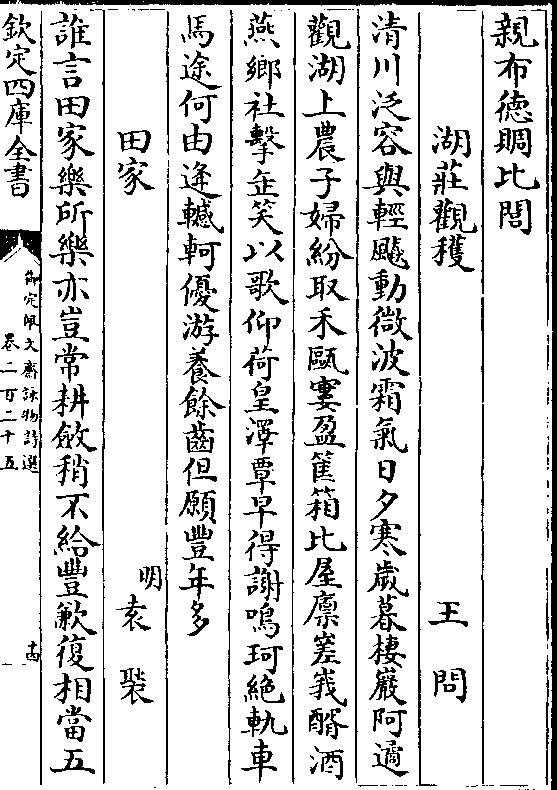 親布德賙比閭
湖莊觀穫 王問
清川泛容與輕飈動微波霜氣日夕寒歲暮棲巖阿適
觀湖上農子婦紛取禾甌窶盈篚箱比屋廩嵳峩醑酒
燕鄉社擊缶笑以歌仰荷皇澤覃早得謝鳴珂絶軌車
馬途何由逢轗軻優游養餘齒但願豐年多
田家 明袁裝
誰言田家樂所樂亦豈常耕斂稍不給豐歉復相當五
欽定四庫全書
御定佩文齋詠物詩選
卷二百二十五
十四